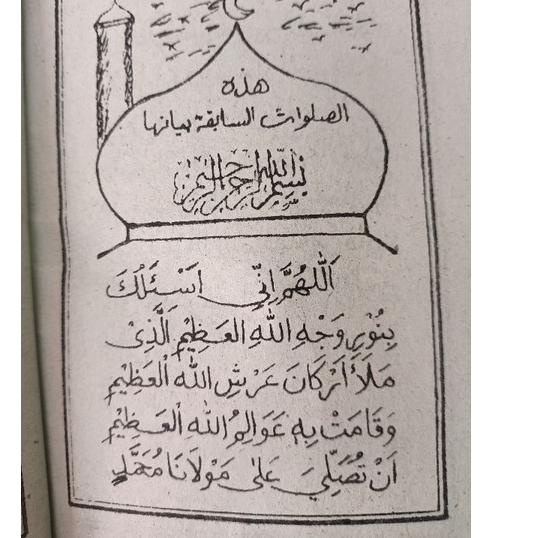 هذه
الصلوات السابقة بيانها
بسم الله الرحمن الرحيم
اَللّٰهُمَّ اِنِّي اَسْئَلُكَ
بِنُوْرِ وَجْهِ اللّٰهِ العَظِيْمِ الَّذِىْ
مَلَأَ اَرْكَانَ عَرْشِ اللّٰهِ الْعَظِيْمِ
وَقَامَتْ بِهٖ عَوَالِمُ اللّٰهِ الْعَظِيْمِ
اَنْ تُصَلِّيَ عَلىٰ مَوْلَانَا مُحَمَّدٍ